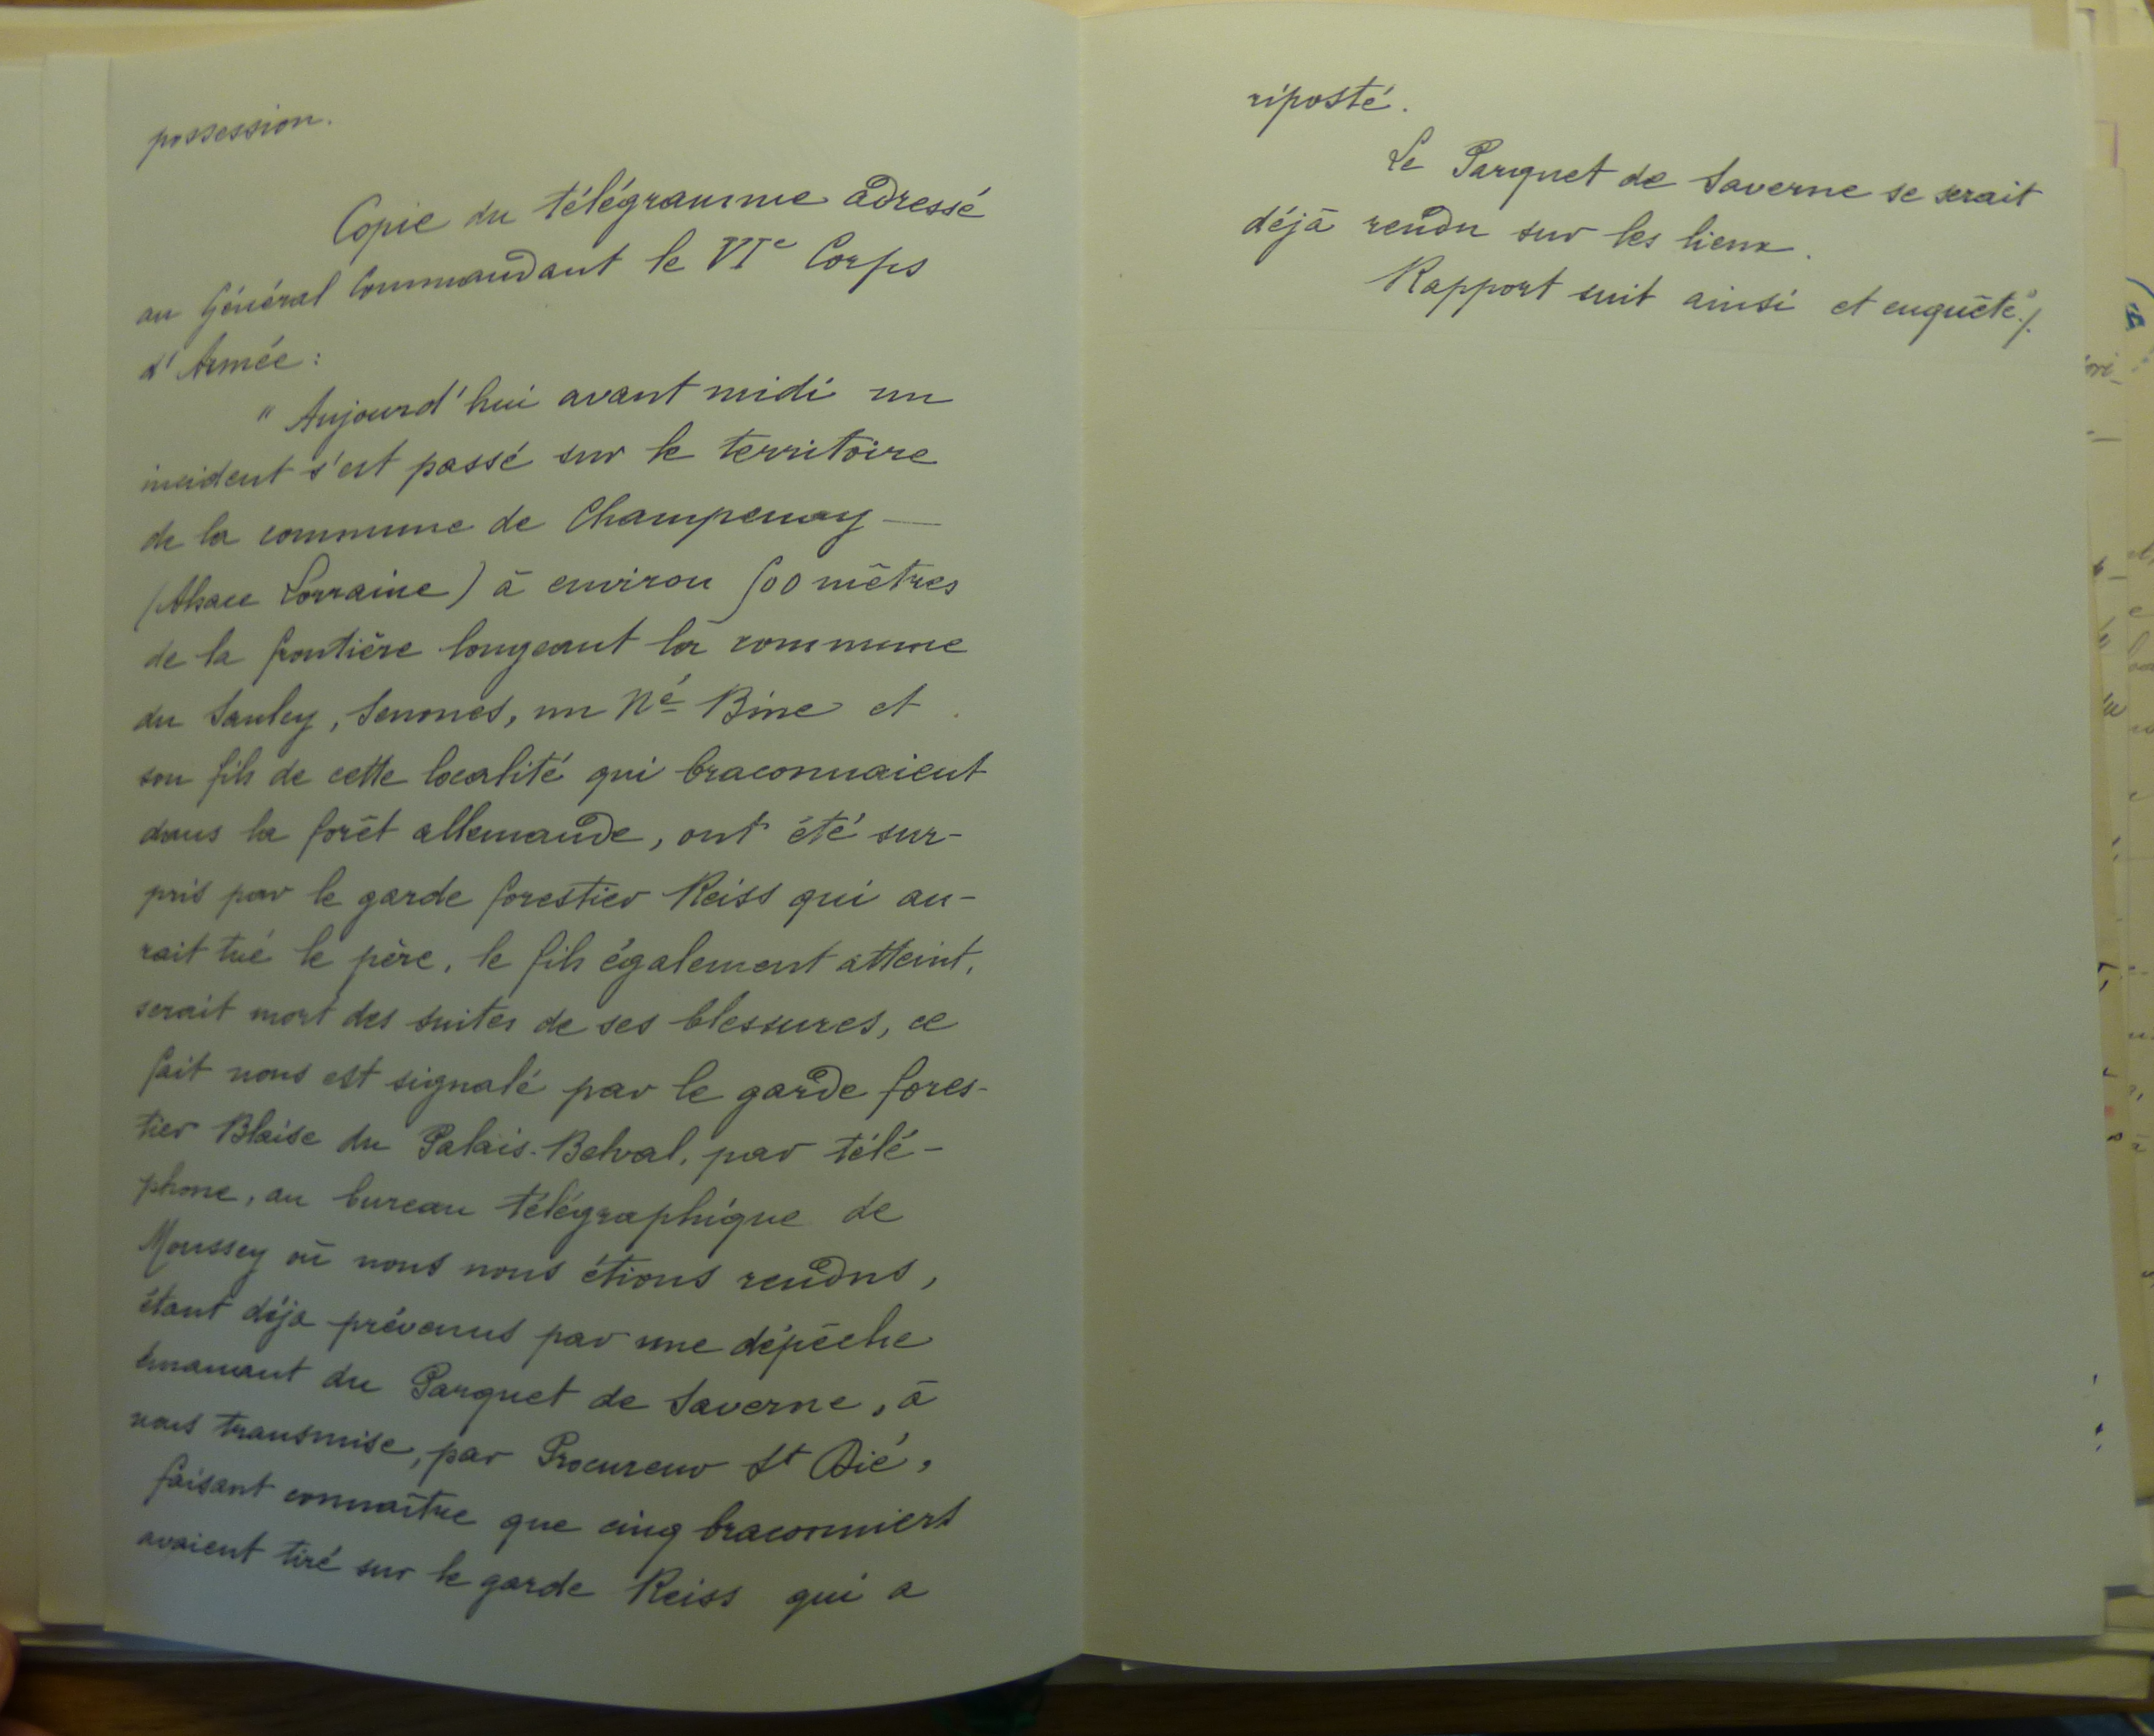 possession.
Copie du télégramme adressé
au Général Commandant le VIe Corps
d'Armée :
" Aujourd'hui avant midi un
incident s'est passé sur le territoire
de la commune de Champenay —
(Alsace Lorraine) à environ 500 mètres
de la frontière longeant la commune
du Saulcy, Senones, un Né Bine et
son fils de cette localité qui braconnaient
dans la forêt allemande, ont été sur-
pris par le garde forestier Reiss qui au-
rait tué le père, le fils également atteint,
serait mort des suites de ses blessures, ce
fait nous est signalé par le garde fores-
tier Blaise du Palais-Belval, par télé-
phone, au bureau télégraphique de
Moussey où nous nous étions rendus,
étant déjà prévenus par une dépêche
émanant du Parquet de Saverne, à
nous transmise, par Procureur St Dié,
faisant connaître que cinq braconniers
avaient tiré sur le garde Reiss qui a
riposté.
Le Parquet de Saverne se serait
déjà rendu sur les lieux.
Rapport suit ainsi et enquête"./.